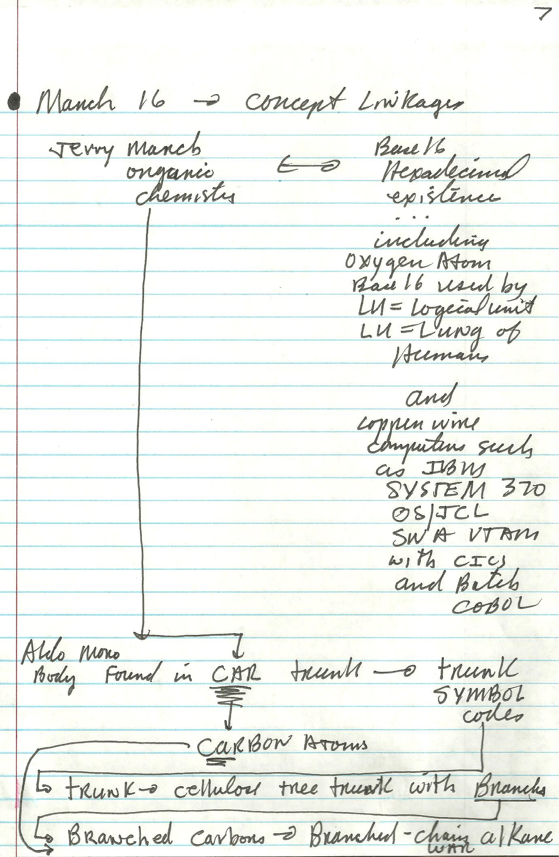 7
March 16 → concept Linkages
Jerry March
organic
chemistry
↔
Base 16
Hexadecimal
existence
...
including
Oxygen Atom
Base 16 used by
LU = Logical unit
LU = Lung of
Humans
and
copper wire
computers such
as IBM
SYSTEM 370
OS/JCL
SNA VTAM
with CICS
and Batch
COBOL
Aldo Moro
Body Found in CAR trunk → trunk
SYMBOL
codes
CARBON Atoms
trunk → cellulose tree trunk with Branchs
Branched carbons → Branched-chain alkane
WAR